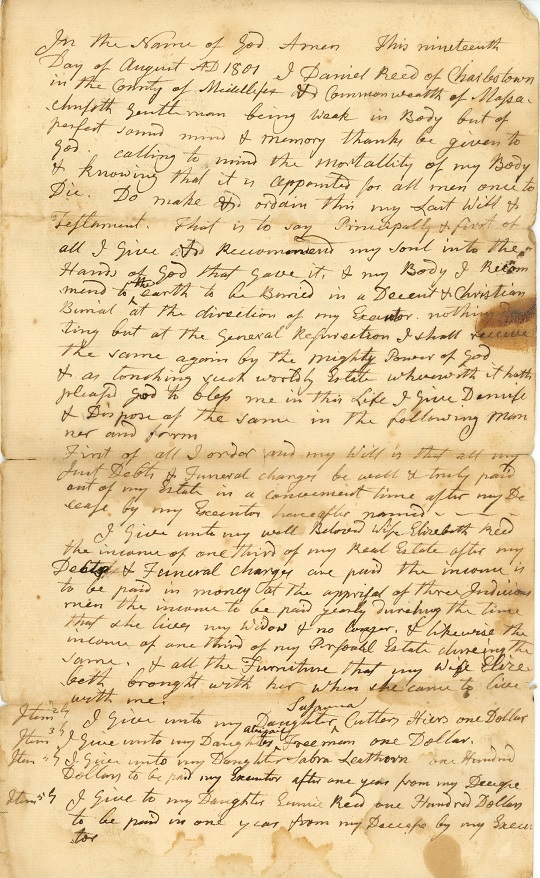 In the Name of God Amen This nineteenth
Day of August AD 1801 I Daniel Reed of Charlestown
in the County of Middlesex & Commonwealth of Massa-
chusetts Gentleman being Weak in Body but of
perfect sound mind & memory thanks be given to
God. calling to mind the Mortallity of my Body
& knowing that it is appointed for all men once to
Die. Do make & ordain this my Last Will &
Testament. That is to say Principally & first of
all I Give & Recommend my Soul into the
Hands of God that gave it, & my Body I Recom
mend to the earth to be Buried in a Decent & Christian
Burial at the direction of my Executor. nothing
ting but at the General Resurrection I shall receive
the same again by the mighty Power of God
& as touching such worldly Estate wherewith it hath
pleasd God to bless me in this Life I Give Demise
& Dispose of the same in the following man
ner and form
First of all I order and my Will is that all my
Just Debts & Funeral charges be well & truly paid
out of my Estate in a convenient time after my De
cease by my Executor hereafter named
I Give unto my well Beloved Wife Elizabeth Reed
the income of one third of my Real Estate after my
Debts & Funeral Charges are paid the income is
to be paid in money at the apprisal of three Judicious
men the income to be paid yearly dureing the time
that she lives my Widow & no longer. & likewise the
income of one third of my Personal Estate dureing the
same. & all the Furniture that my Wife Eliza
beth brought with her when she came to live
with me.
Item 2ly I Give unto my Daughter Susanna Cutters Hiers one Dollar
Item 3ly I Give unto my Daughter abigail Freeman one Dollar.
Item 4ly I Give unto my Daughter Tabra Leathorn one Hundred
Dollars to be paid my Executor after one year from my Decese
Item 5ly I Give to my Daughter Eunice Reed one Hundred Dollars
to be paid in one year from my Decease by my Execu
tor